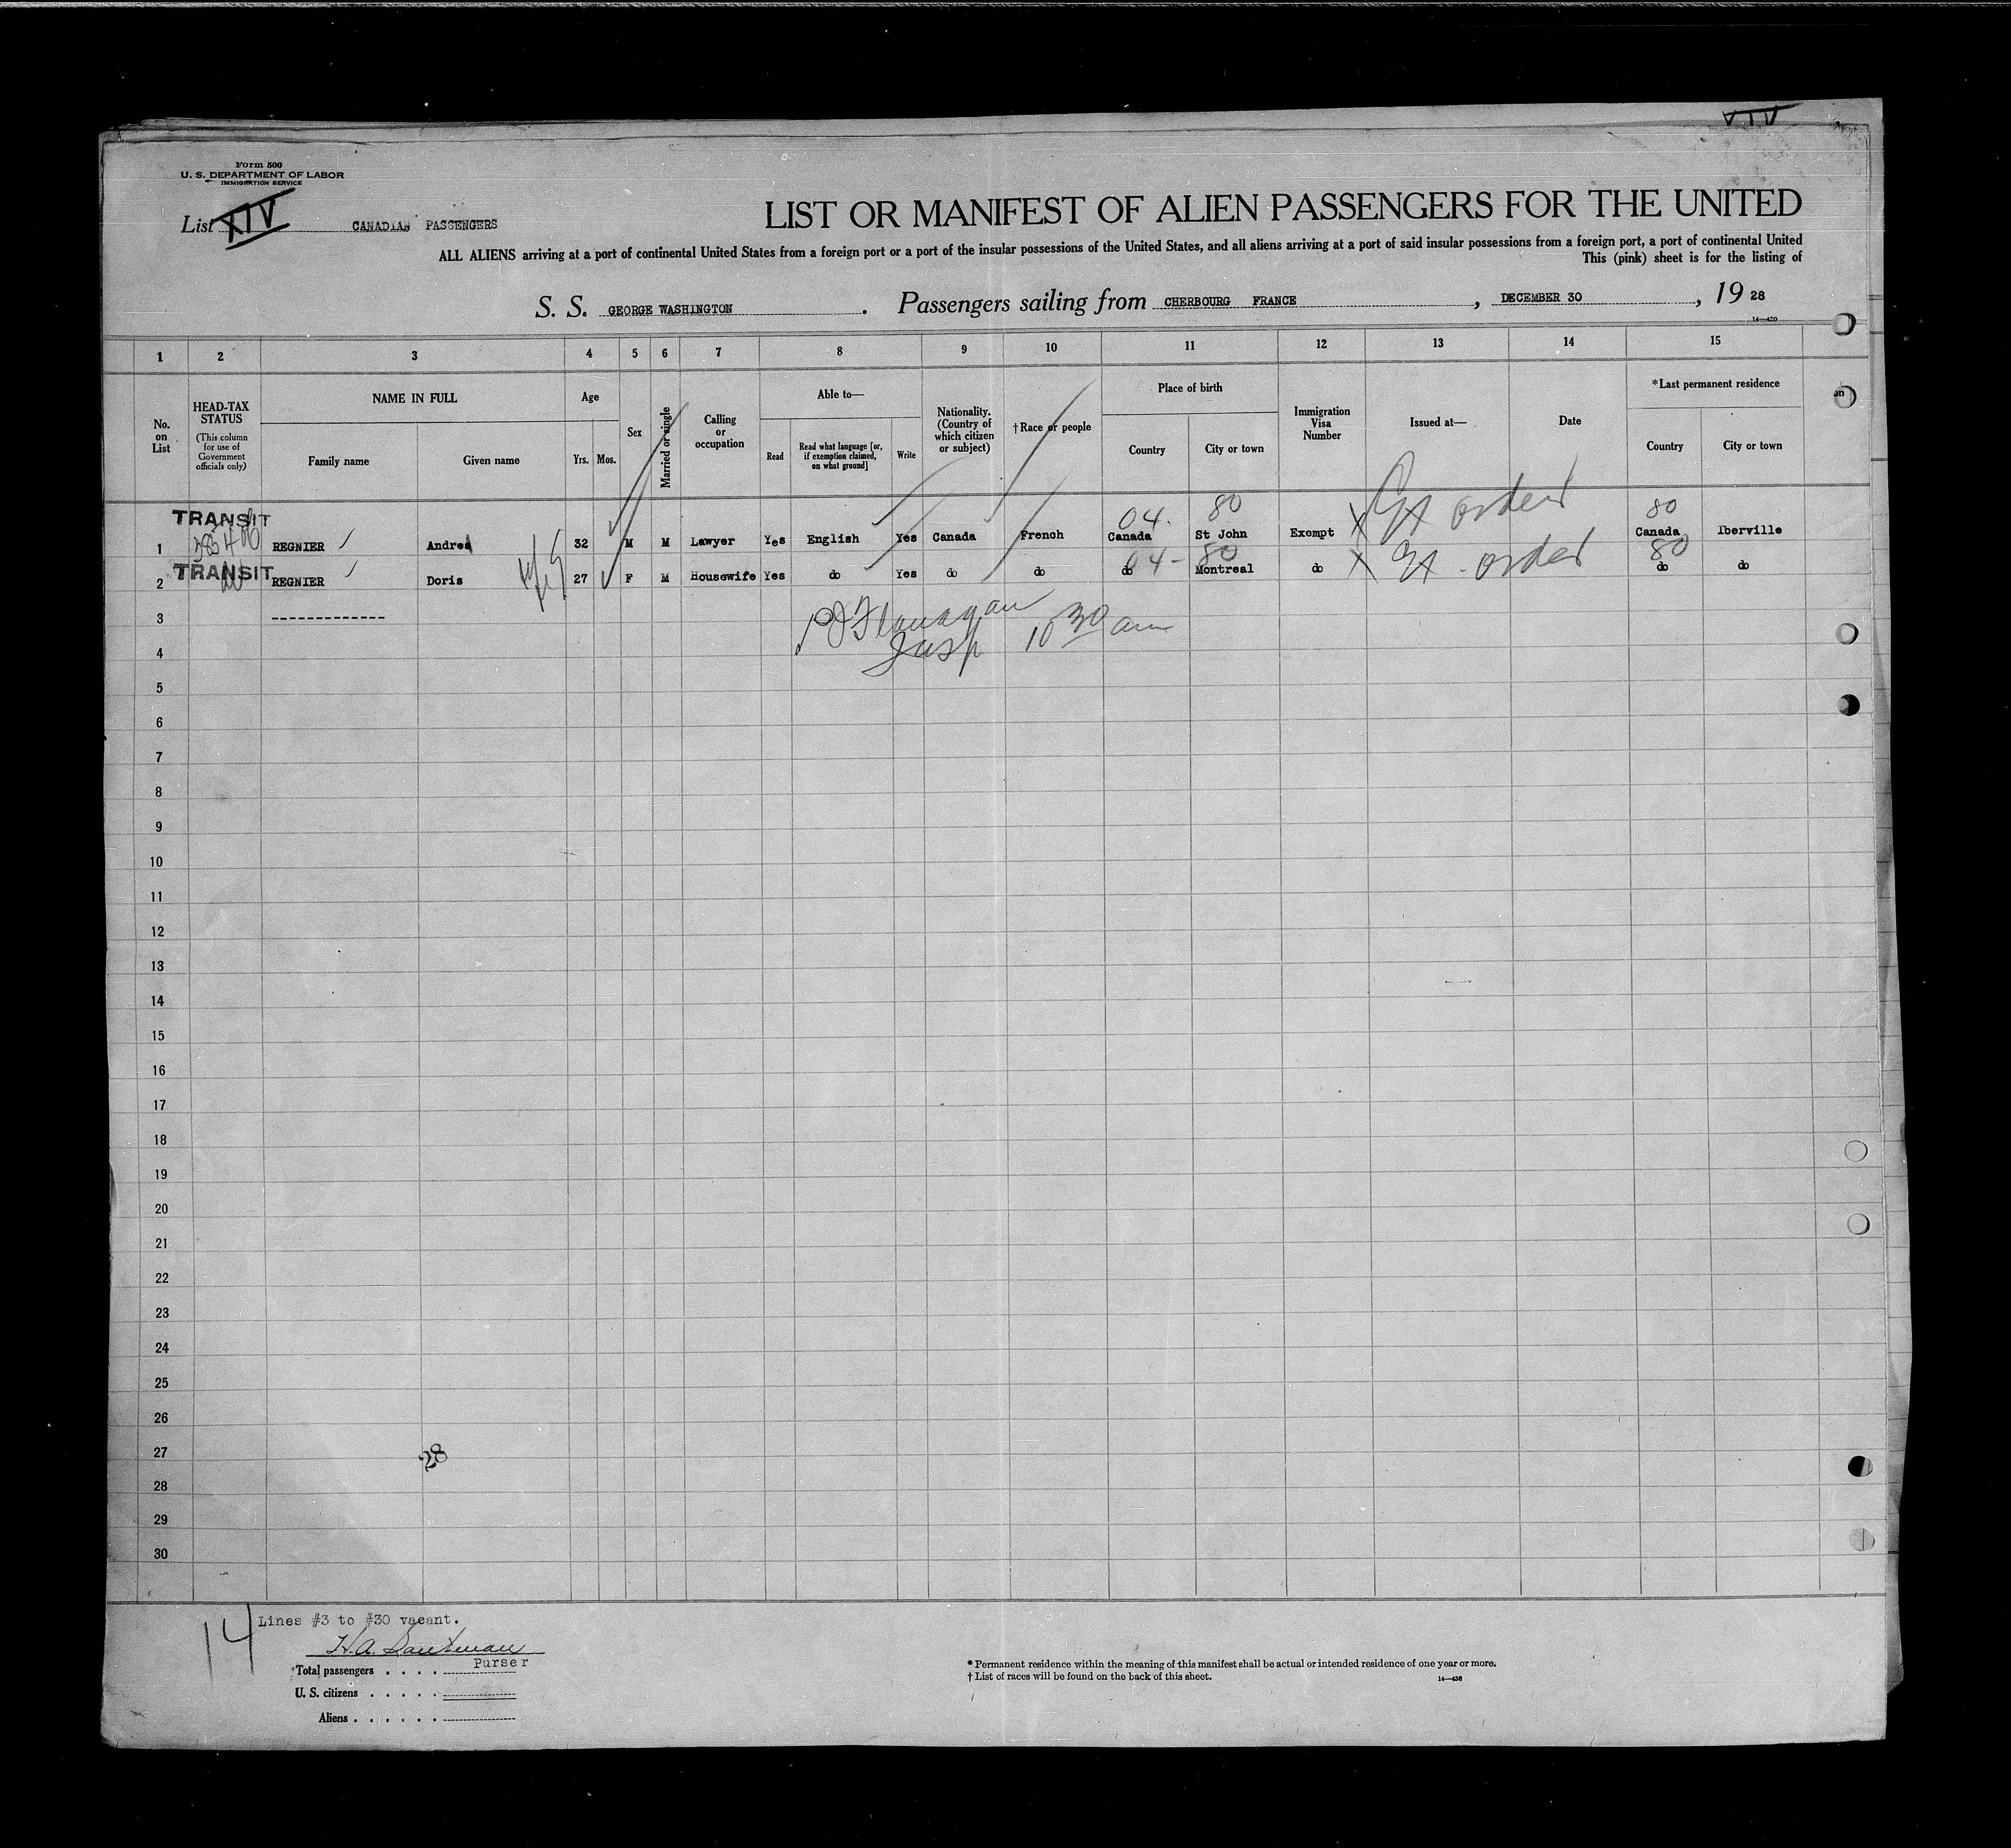 XIV
Form 500
U. S. DEPARTMENT OF LABOR
IMMIGRATION SERVICE
List XIV CANADIAN PASSENGERS
LIST OR MANIFEST OF ALIEN PASSENGERS FOR THE UNITED
ALL ALIENS arriving at a port of continental United States from a foreign port or a port of the insular possessions of the United States, and all aliens arriving at a port of said insular possessions from a foreign port, a port of continental United
This (pink) sheet is for the listing of
S. S. GEORGE WASHINGTON . Passengers sailing from CHERBOURG FRANCE , DECEMBER 30 , 19 28
14—430
1 2 3 4 5 6 7 8 9 10 11 12 13 14 15
No. on List
HEAD-TAX STATUS
(This column for use of Government officials only)
NAME IN FULL
Family name Given name
Age
Yrs. Mos.
Sex
Married or single
Calling or occupation
Able to—
Read
Read what language [or, if exemption claimed, on what ground]
Write
Nationality. (Country of which citizen or subject)
†Race or people
Place of birth
Country City or town
Immigration Visa Number
Issued at—
Date
*Last permanent residence
Country City or town
TRANSIT 04. 80 80
1 REGNIER Andrea 32 M M Lawyer Yes English Yes Canada French Canada St John Exempt X Ex order Canada Iberville
TRANSIT 04- 80 80
2 REGNIER Doris 27 F M Housewife Yes do Yes do do do Montreal do X Ex order do do
3 -------------
PJ Flanagan
Insp 10 30 am
4
5
6
7
8
9
10
11
12
13
14
15
16
17
18
19
20
21
22
23
24
25
26
27 28
28
29
30
14 Lines #3 to #30 vacant.
Purser
Total passengers . . . .
U. S. citizens . . . . .
Aliens . . . . . .
* Permanent residence within the meaning of this manifest shall be actual or intended residence of one year or more.
† List of races will be found on the back of this sheet.
14—430